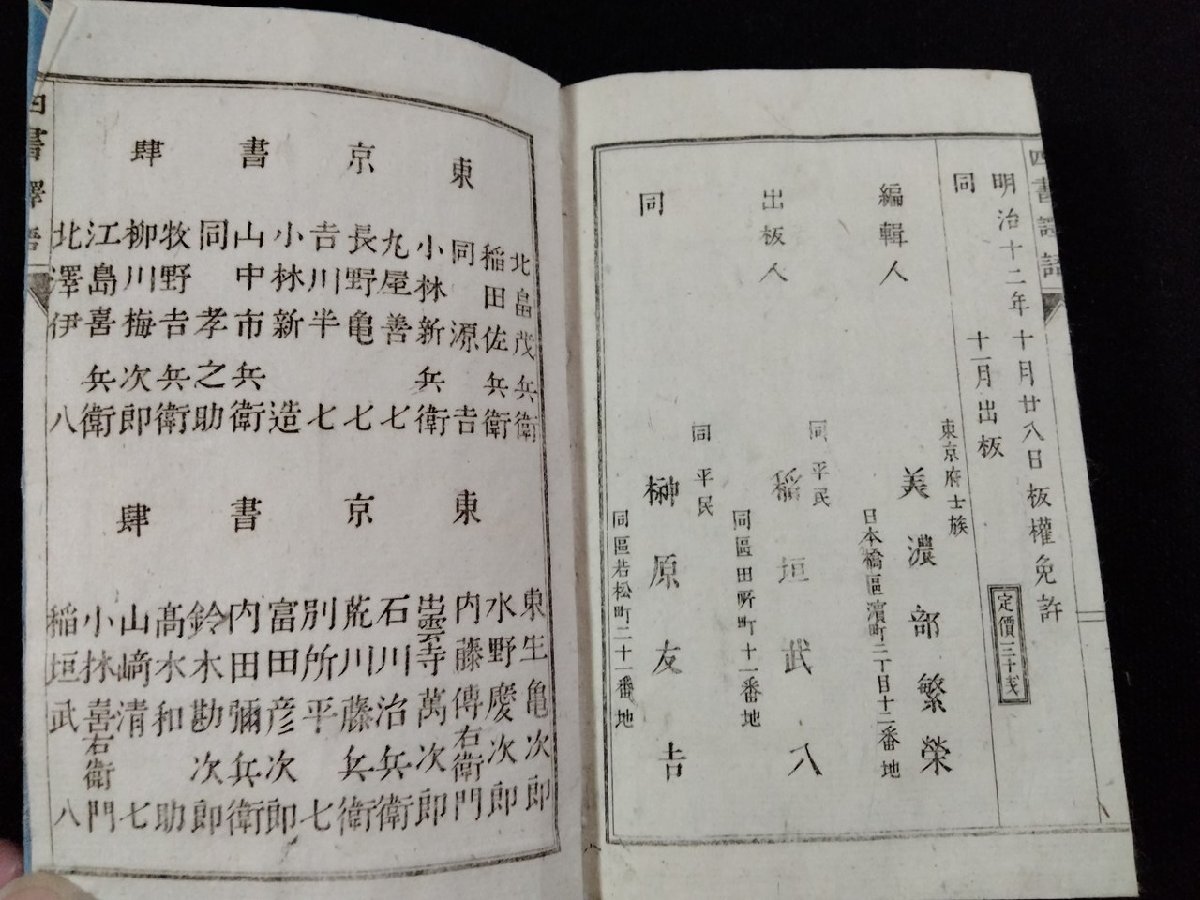 四書譯語
明治十二年十月廿八日板權免許
同 十一月出板
定價三十錢
東京府士族
編輯人 美濃部繁榮
日本橋區濱町二丁目十二番地
同平民
出板人 稲垣武八
同區田所町十一番地
同平民
同 榊原友吉
同區若松町二十一番地
東京書肆
北畠茂兵衛
稲田佐兵衛
同源吉
小林新兵衛
丸屋善七
長野亀七
吉川半七
小林新造
山中市兵衛
同孝之助
牧野吉兵衛
柳川梅次郎
江島喜兵衛
北澤伊八
東京書肆
東生亀次郎
水野慶次郎
内藤傳右衛門
出雲寺萬次郎
石川治兵衛
荒川藤兵衛
別所平七
富田彦次郎
内田彌兵衛
鈴木勘次郎
髙木和助
山﨑清七
小林喜右衛門
稲垣武八
四書譯語